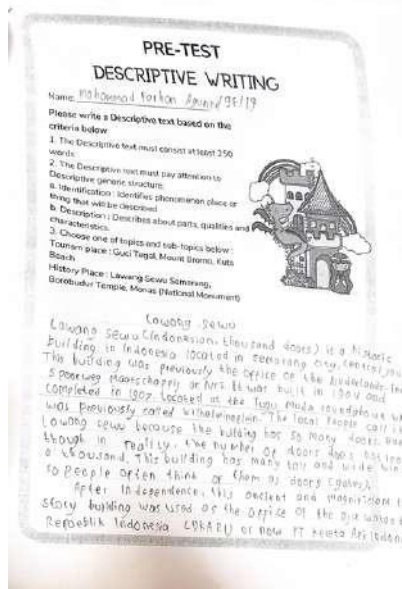 PRE-TEST
DESCRIPTIVE WRITING
Name: Mohammad Farhan
Please write a Descriptive text based on the
criteria below
1. The Descriptive text must consist at least 250
words.
2. The Descriptive text must pay attention to
Descriptive generic structure.
a. Identification : Identifies phenomenon place or
thing that will be described
b. Description : Describes about parts, qualities and
characteristics.
3. Choose one of topics and sub-topics below :
Tourism place : Guci Tegal, Mount Bromo, Kuta
Beach
History Place : Lawang Sewu Semarang,
Borobudur Temple, Monas (National Monument)
Lawang Sewu
Lawang Sewu (Indonesian, thousand doors) is a historic
building in Indonesia located in Semarang city, Central
This building was previously the office of the
Spoorweg Maatschappij or NIS. It was built in 1904 and
completed in 1907. Located at the Tugu Muda roundabout
was previously called Wilhelminaplein. The local people call
Lawang Sewu because the building has so many doors.
though in reality, the number of doors does not
a thousand. This building has many tall and wide
so people often think of them as doors
After independence, this ancient and magnificent
story building was used as the office of the
Repoeblik Indonesia (DKARI) or now PT Kereta Api